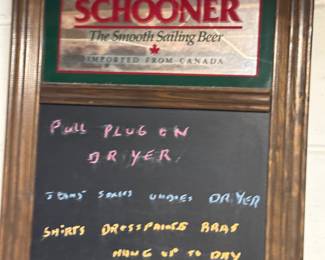 SCHOONER
The Smooth Sailing Beer
IMPORTED FROM CANADA
PULL PLUG ON
DRYER
JEANS SOCKS UNDIES DRYER
SHIRTS DRESSPANTS BRAS
HANG UP TO DRY